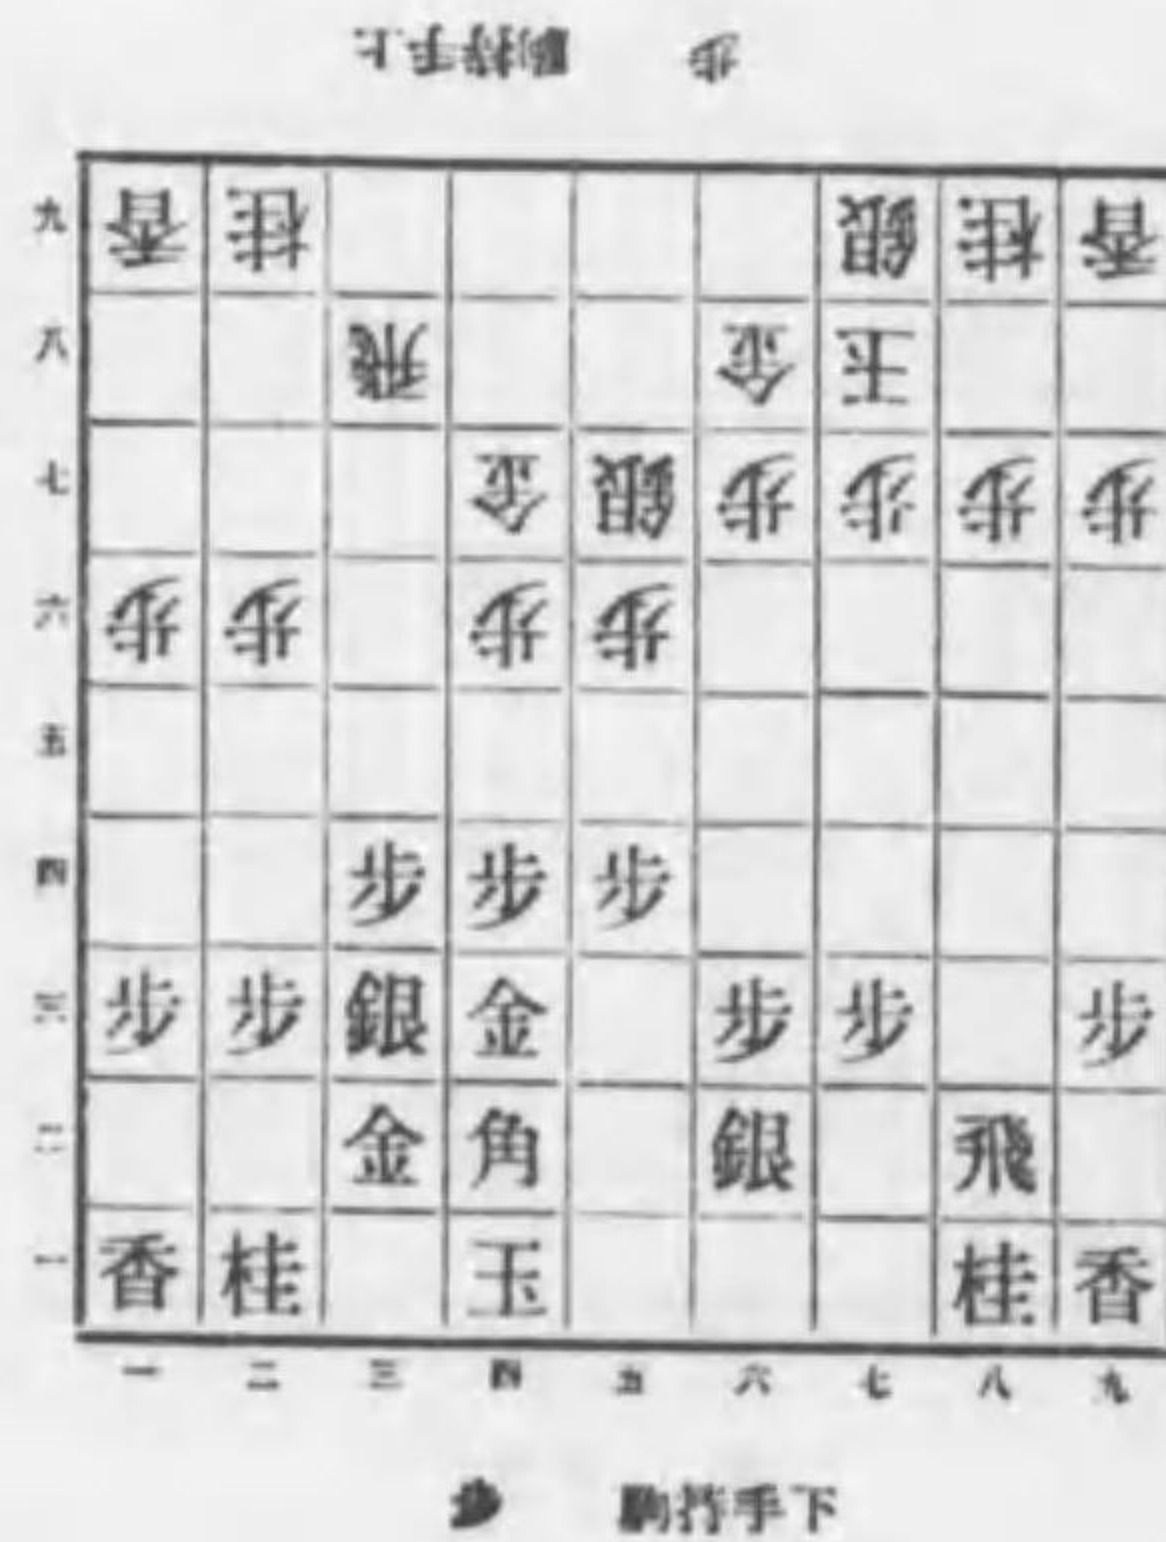 上手持駒 歩
九 香 桂 銀 桂 香
八 飛 金 玉
七 金 銀 歩 歩 歩 歩
六 歩 歩 歩 歩
五
四 歩 歩 歩
三 歩 歩 銀 金 歩 歩 歩
二 金 角 銀 飛
一 香 桂 玉 桂 香
一 二 三 四 五 六 七 八 九
歩 駒持手下